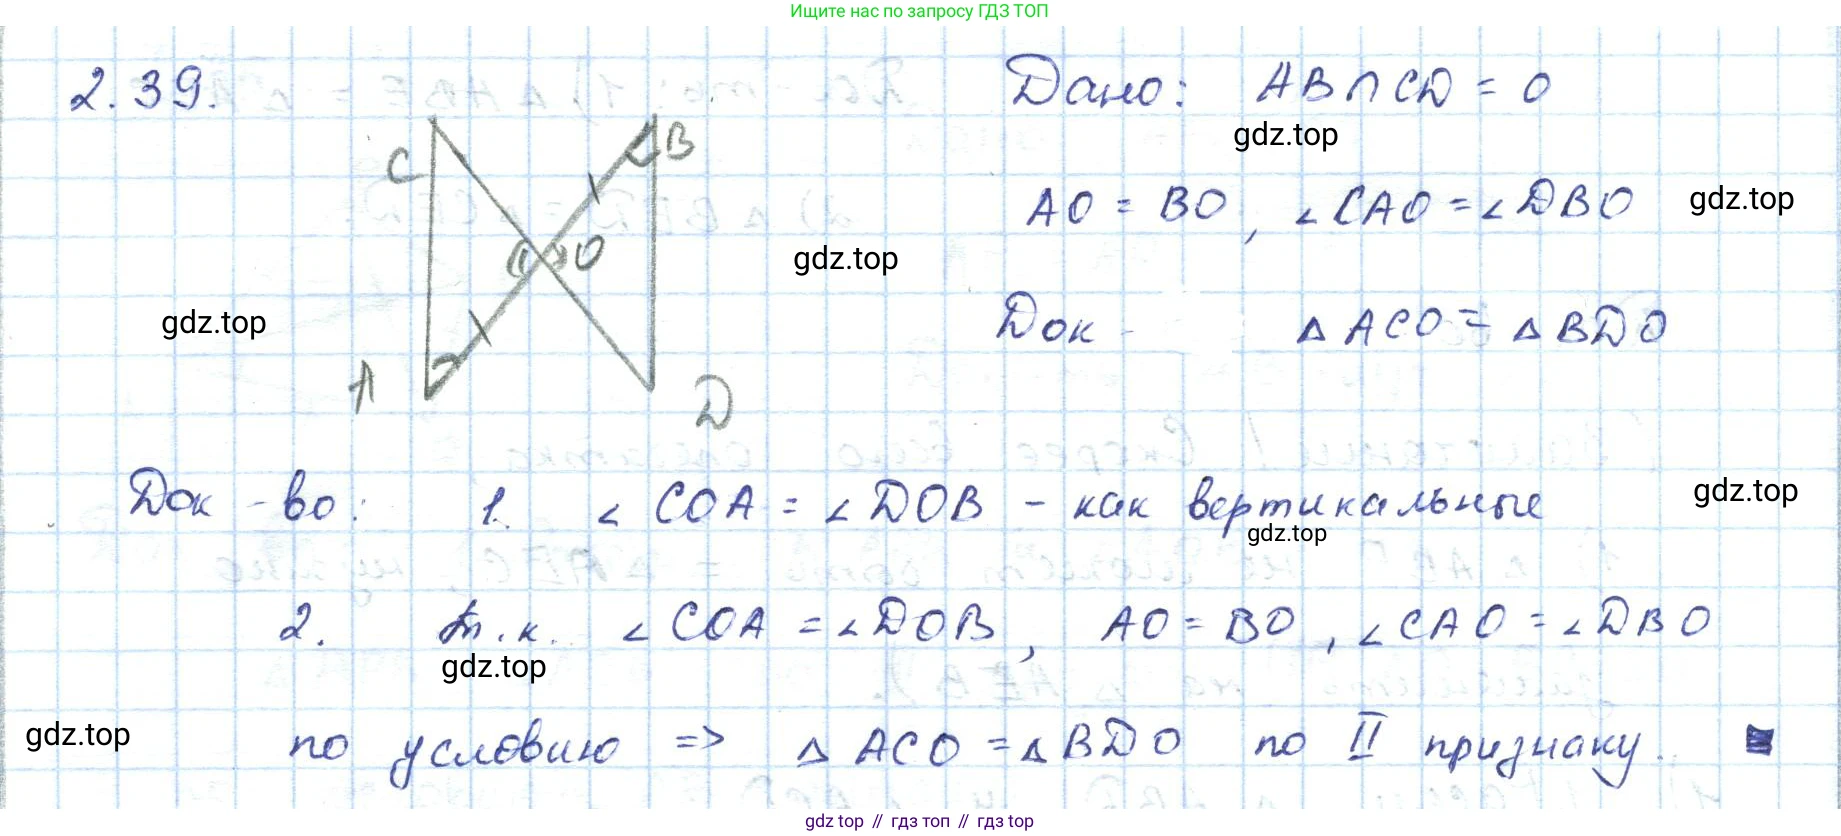 Ищите нас по запросу ГДЗ ТОП
2.39.
Дано: AB∩CD = O
gdz.top
C
B
AO = BO, ∠CAO = ∠DBO
gdz.top
O
gdz.top
gdz.top
Док - ΔACO = ΔBDO
A
D
Док-во: 1. ∠COA = ∠DOB - как вертикальные
gdz.top
gdz.top
2. т.к. ∠COA = ∠DOB, AO = BO, ∠CAO = ∠DBO
gdz.top
gdz.top
по условию => ΔACO = ΔBDO по II признаку.
gdz.top // гдз топ // гдз top